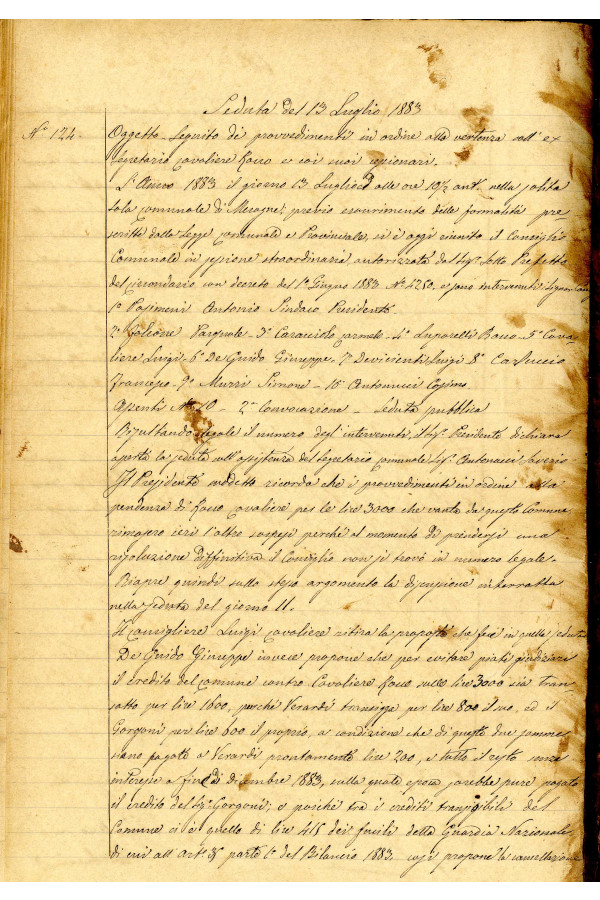 Seduta del 13 Luglio 1883
N° 124. Oggetto - Seguito dei provvedimenti in ordine alla vertenza coll' ex
Segretario Cavaliere Rocco e coi suoi cessionari.
L'Anno 1883 il giorno 13 Luglio alle ore 10½ ant. nella solita
sala comunale di Mesagne, previo esaurimento delle formalità pre
scritte dalla Legge Comunale e Provinciale, si è oggi riunito il Consiglio
Comunale in sessione straordinaria autorizzata dal Sigr Sotto Prefetto
del Circondario con decreto del 1° Giugno 1883 N° 4250, e sono intervenuti i Signori
1° Pasimeni Antonio Sindaco Presidente.
2° Falcone Pasquale - 3° Caracciolo Carmelo - 4° Luparelli Rocco - 5° Cava-
liere Luigi - 6° De Guido Giuseppe - 7° Devicienti Luigi 8° Carluccio
Francesco - 9° Murri Simone - 10° Antonucci Cosimo.
Assenti N° 20 - 2a Convocazione - Seduta pubblica
Risultando legale il numero degl' intervenuti, il Sigr Presidente dichiara
aperta la seduta coll' assistenza del Segretario comunale Sigr Antonucci Saverio
Il Presidente suddetto ricorda che i provvedimenti in ordine alla
pendenza di Rocco Cavaliere per le lire 3000 che vanta da questo Comune
rimasero ieri l'altro sospesi perchè al momento di prendersi una
risoluzione diffinitiva il Consiglio non si trovò in numero legale.
Riapre quindi sullo stesso argomento la discussione interrotta
nella seduta del giorno 11.
Il Consigliere Luigi Cavaliere ritira la proposta che fece in quella seduta
De Guido Giuseppe invece propone che per evitare piati giudiziari
il credito del comune contro Cavaliere Rocco sulle lire 3000 sia tran-
satto per lire 1600, perchè Verardi transige per lire 800 il suo, ed il
Gorgoni per lire 600 il proprio, a condizione che di queste due somme
siano pagate a Verardi prontamente lire 200, e tutto il resto senza
interesse a fine di dicembre 1883, sulla quale epoca sarebbe pure pagato
il credito del Sigr Gorgoni; e poichè tra i crediti transigibili del
Comune ci è quello di lire 415 dei fucili della Guardia Nazionale
di cui all' Art° 35 parte 1a del Bilancio 1883, così propone la cancellazione